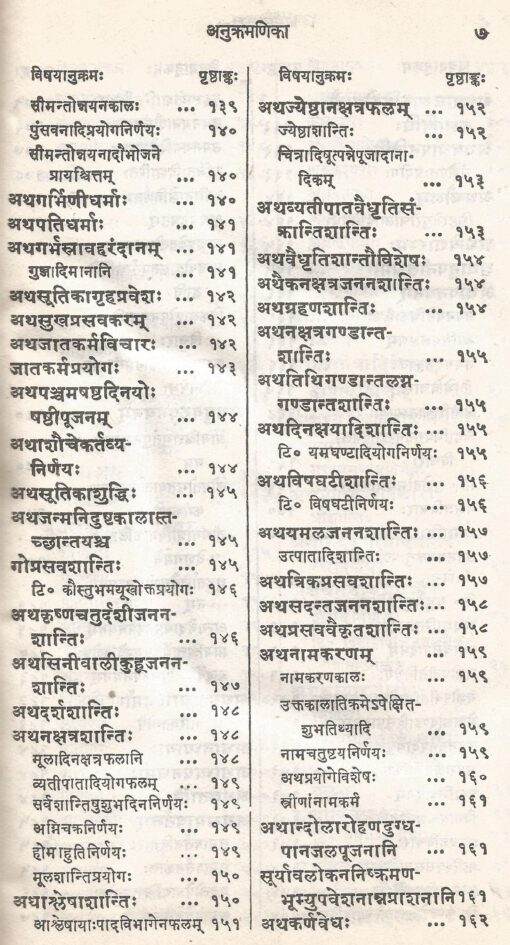 अनुक्रमणिका ७
विषयानुक्रमः पृष्ठाङ्कः
सीमन्तोन्नयनकालः ... १३९
पुंसवनादिप्रयोगनिर्णयः १४०
सीमन्तोन्नयनादौभोजने
प्रायश्चित्तम् ... १४०
अथगर्भिणीधर्माः ... १४०
अथपतिधर्माः ... १४१
अथगर्भस्रावहरंदानम् ... १४१
गुञ्जादिमानानि ... १४१
अथसूतिकागृहप्रवेशः ... १४२
अथसुखप्रसवकरम् ... १४२
अथजातकर्मविचारः ... १४२
जातकर्मप्रयोगः ... १४३
अथपञ्चमषष्ठदिनयोः
षष्ठीपूजनम् ... १४४
अथाशौचेकर्तव्य-
निर्णयः ... १४४
अथसूतिकाशुद्धिः ... १४५
अथजन्मनिदुष्टकालास्त-
च्छान्तयश्च ... १४५
गोप्रसवशान्तिः ... १४५
टि० कौस्तुभमयूखोक्तप्रयोगः १४६
अथकृष्णचतुर्दशीजनन-
शान्तिः ... १४६
अथसिनीवालीकुहूजनन-
शान्तिः ... १४७
अथदर्शशान्तिः ... १४८
अथनक्षत्रशान्तिः ... १४८
मूलादिनक्षत्रफलानि ... १४८
व्यतीपातादियोगफलम् ... १४९
सर्वशान्तिषुशुभदिननिर्णयः १४९
अग्निचक्रनिर्णयः ... १४९
होमाहुतिनिर्णयः ... १४९
मूलशान्तिप्रयोगः ... १५०
अथाश्लेषाशान्तिः ... १५०
आश्लेषायाःपादविभागेनफलम् १५१
विषयानुक्रमः पृष्ठाङ्कः
अथज्येष्ठानक्षत्रफलम् ... १५२
ज्येष्ठाशान्तिः ... १५२
चित्रादिषूत्पन्नेपूजादाना-
दिकम् ... १५३
अथव्यतीपातवैधृतिसं-
क्रान्तिशान्तिः ... १५३
अथवैधृतिशान्तौविशेषः १५४
अथैकनक्षत्रजननशान्तिः ... १५४
अथग्रहणशान्तिः ... १५४
अथनक्षत्रगण्डान्त-
शान्तिः ... १५५
अथतिथिगण्डान्तलग्न-
गण्डान्तशान्तिः ... १५५
अथदिनक्षयादिशान्तिः ... १५५
टि० यमघण्टादियोगनिर्णयः १५५
अथविषघटीशान्तिः ... १५६
टि० विषघटीनिर्णयः ... १५६
अथयमलजननशान्तिः ... १५७
उत्पातादिशान्तिः ... १५७
अथत्रिकप्रसवशान्तिः ... १५७
अथसदन्तजननशान्तिः ... १५८
अथप्रसववैकृतशान्तिः ... १५८
अथनामकरणम् ... १५९
नामकरणकालः ... १५९
उक्तकालातिक्रमेऽपेक्षित-
शुभतिथ्यादि ... १५९
नामचतुष्टयनिर्णयः ... १५९
अथप्रयोगेविशेषः ... १६०
स्त्रीणांनामकर्म ... १६१
अथान्दोलारोहणदुग्ध-
पानजलपूजनानि ... १६१
सूर्यावलोकननिष्क्रमण-
भूम्युपवेशनान्नप्राशनानि १६१
अथकर्णवेधः ... १६२